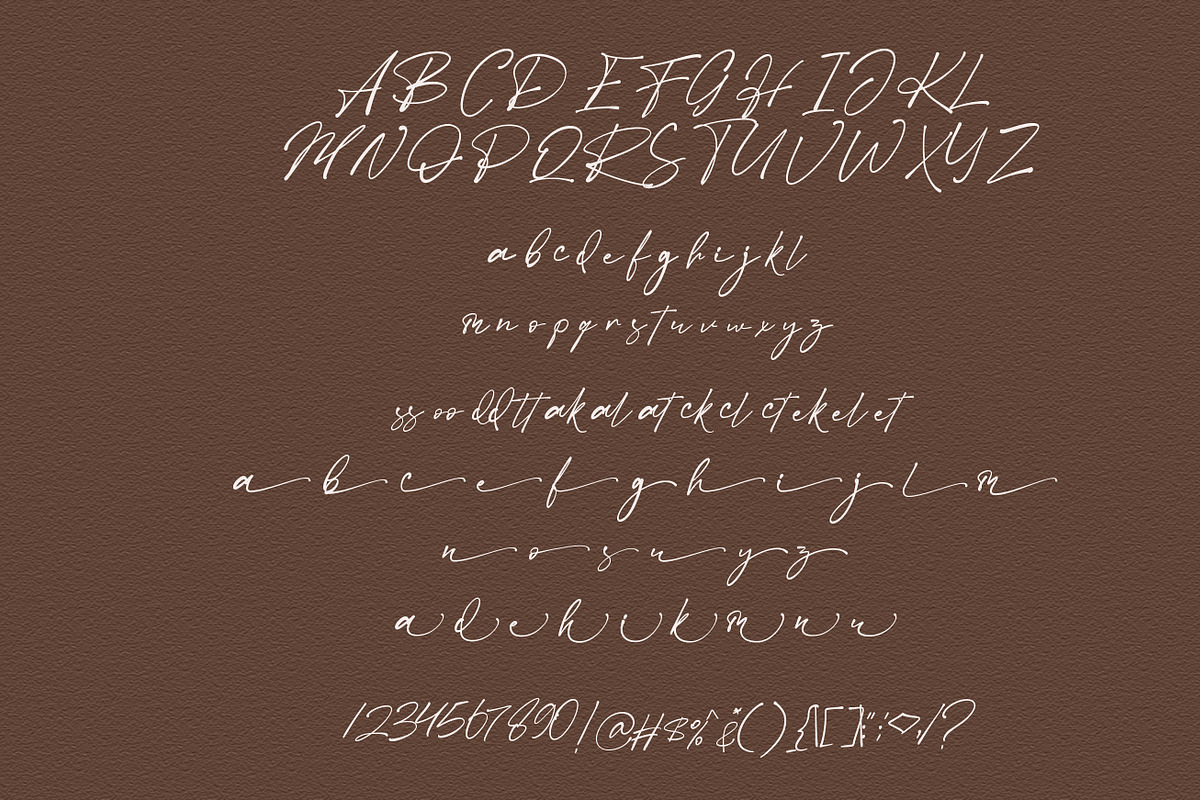 ABCDEFGHIJKL
MNOPQRSTUVWXYZ
abcdefghijkl
mnopqrstuvwxyz
ss oo dd tt ak al at ck cl ct ek el et
a b c e f g h i j l m
n o s u y z
a d e h i k m n u
1234567890!@#$%^&*(){}[]|:";'<>,./?